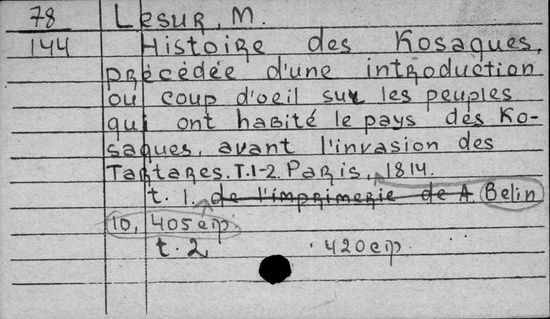 78 Lesur, M.
144 Histoire des Kosaques,
précédée d'une introduction
ou coup d'oeil sur les peuples
qui ont habité le pays des Ko-
saques, avant l'invasion des
Tartares. T.1-2. Paris, 1814.
t. 1. de l'imprimerie de A. Belin
10, 405 стр.
t. 2 . 420 стр.